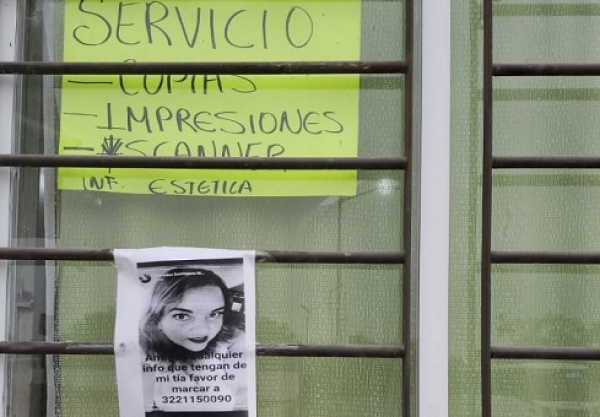 SERVICIO
— COPIAS
— IMPRESIONES
— SCANNER
INF. ESTETICA
cualquier
info que tengan de
mi tía favor de
marcar a
3221150090